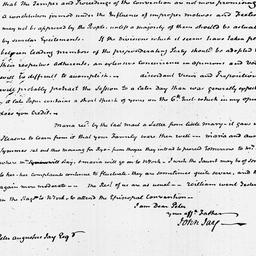 that the Temper and Proceedings of the Convention are not more promising
a constitution formed under the Influence of improper motives and
may not be approved by the People, unless a majority of them should be actuated
by similar Sentiments. If the Divisions which it seems have taken place
between leading members of the preponderating Party should be adopted by
their respective adherents, an extensive concurrence in opinions and
will be difficult to accomplish. discordant Views and Propositions
will probably protract the Session to a later Day than was generally expected
it take place contains a short sketch of yours on the 6th Inst. which in my opinion
does you credit.
Maria recd. by the last mail a Letter from little mary — it gave us
Pleasure to learn from it that your Family were then well — maria and
and this morning for Rye — from thence they intend to proceed Tomorrow to
where maria will go on to N York. I wish the Jaunt may be of
to her. her complaints continue to fluctuate. they are sometimes quite severe, and then
again more moderate — The Rest of us are as usual — William went
on the to N. York, to attend the Episcopal Convention —
I am Dear Peter
your affte. Father
John Jay
Peter Augustus Jay Esqr.